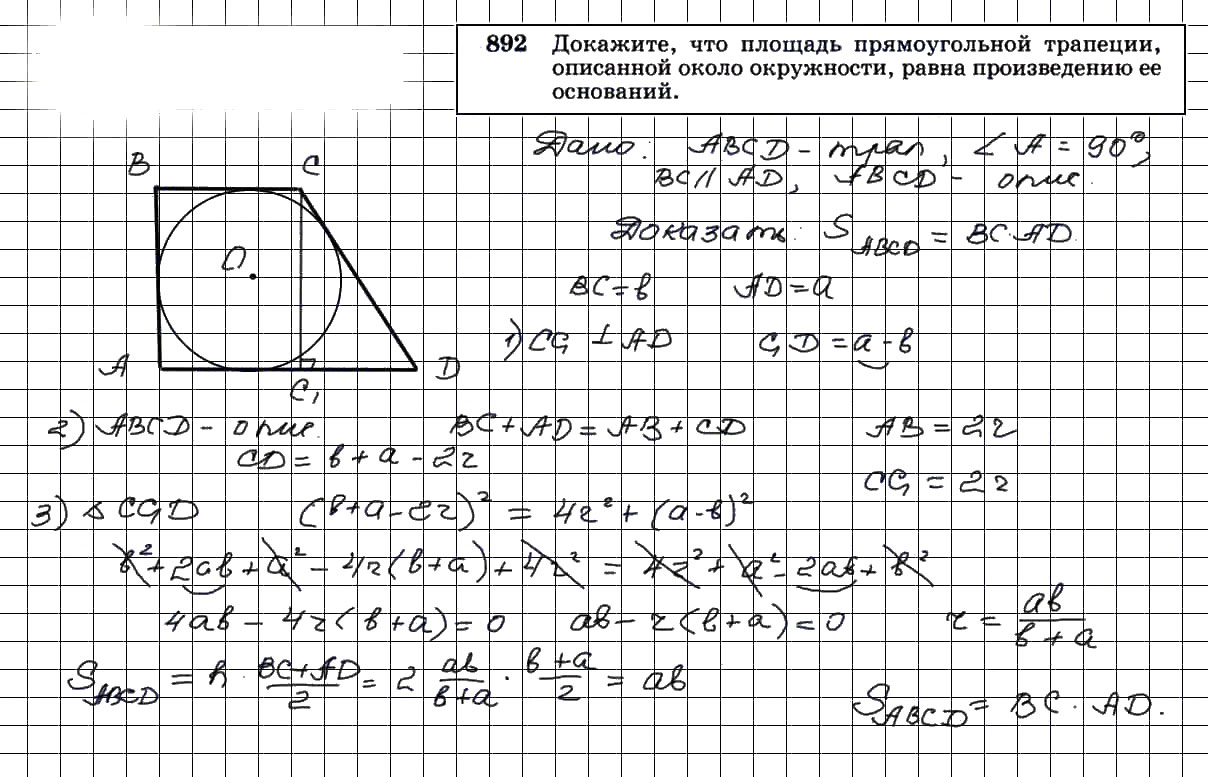 892 Докажите, что площадь прямоугольной трапеции,
описанной около окружности, равна произведению ее
оснований.
Дано: ABCD – трап, ∠A = 90°,
BC ∥ AD, ABCD – опис.
Доказать: S_ABCD = BC·AD
BC = в AD = a
1) CC₁ ⊥ AD C₁D = a - в
B C
O
A C₁ D
2) ABCD – опис. BC + AD = AB + CD AB = 2r
CD = в + a - 2r
CC₁ = 2r
3) △CC₁D (в+a-2r)² = 4r² + (a-в)²
в² + 2aв + a² - 4r(в+a) + 4r² = 4r² + a² - 2aв + в²
4aв - 4r(в+a) = 0 aв - r(в+a) = 0 r = aв/(в+a)
S_ABCD = h · (BC+AD)/2 = 2 aв/(в+a) · (в+a)/2 = aв
S_ABCD = BC · AD.